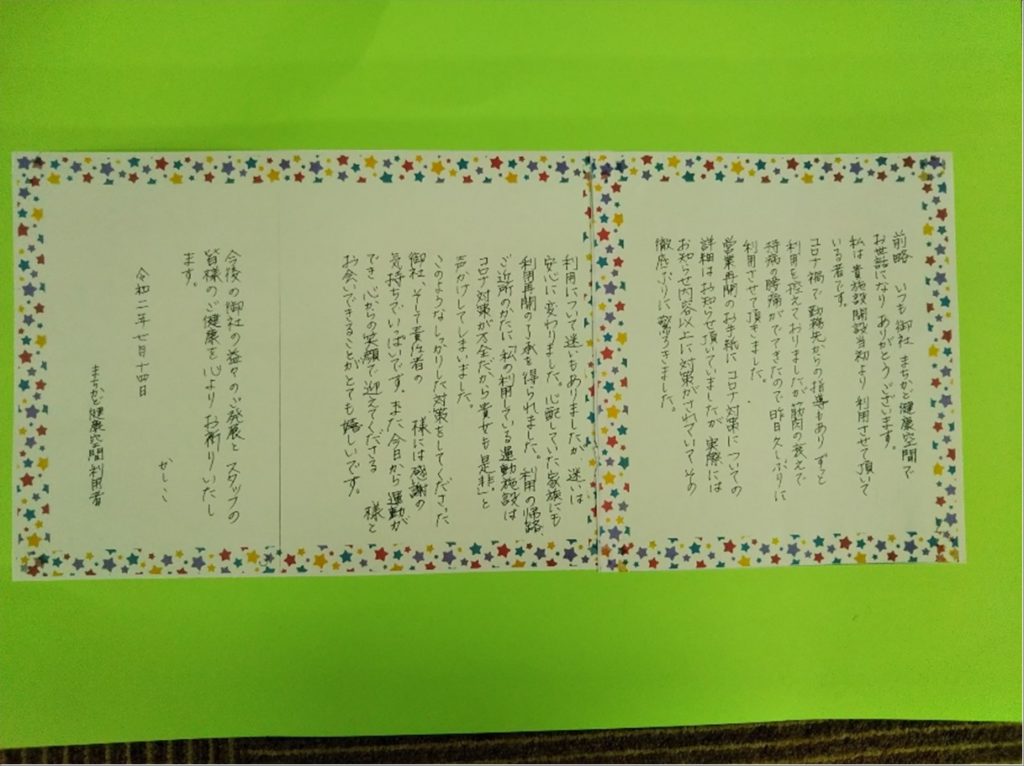 前略　いつも御社　まちかど健康空間で
お世話になり ありがとうございます。
私は貴施設開設当初より 利用させて頂いて
いる者です。
コロナ禍で 勤務先からの指導もあり ずっと
利用を控えておりましたが 筋肉の衰えで
持病の腰痛がでてきたので 昨日久しぶりに
利用させて頂きました。
営業再開のお手紙に コロナ対策についての
詳細はお知らせ頂いていましたが 実際には
お知らせ内容以上に 対策がされていて その
徹底ぶりに 驚ろきました。
利用について迷いもありましたが 迷いは
安心に変わりました。心配していた家族にも
利用再開の了承を得られました。利用の帰路、
ご近所のかたに「私の利用している運動施設は
コロナ対策が万全だから貴女も是非」と
声がけしてしまいました。
このようなしっかりした対策をしてくださった
御社、そして責任者の　　様には感謝の
気持ちでいっぱいです。また、今日から運動が
でき 心からの笑顔で迎えてくださる　　様と
お会いできることがとても嬉しいです。
今後の御社の益々のご発展と スタッフの
皆様のご健康を心より お祈りいたし
ます。
かしこ
令和二年七月十四日
まちかど健康空間利用者